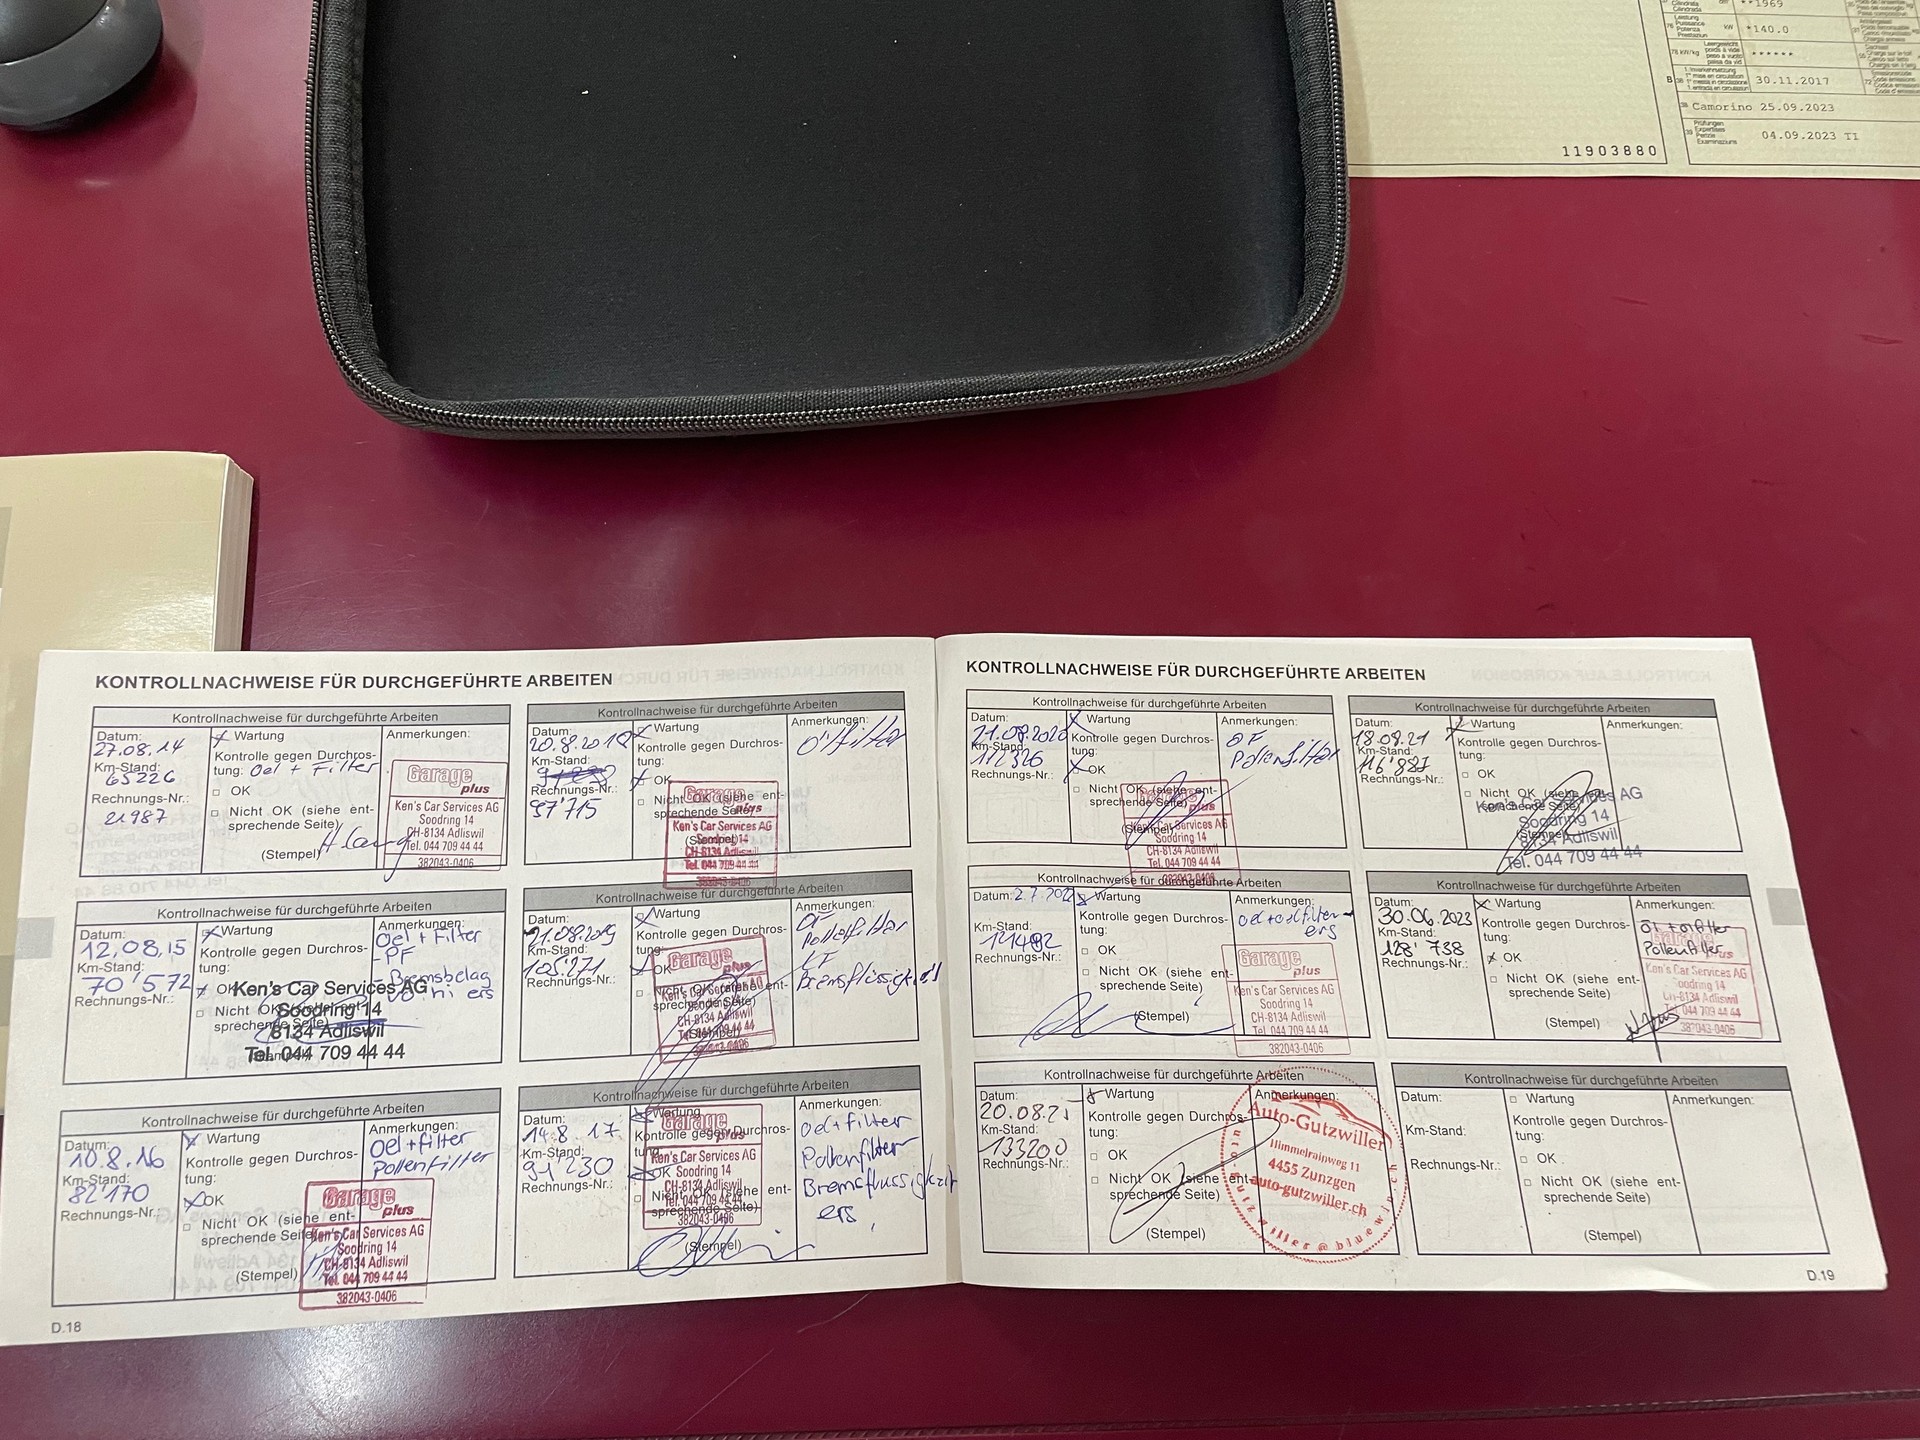 **1969
Leistung
Puissance
Potenza
Prestaziun
kW
*140.0
78 kW/kg
******
B
30.11.2017
Camorino 25.09.2023
Prüfungen
Expertises
Perizie
Examinaziuns
04.09.2023 TI
11903880
KONTROLLNACHWEISE FÜR DURCHGEFÜHRTE ARBEITEN
Kontrollnachweise für durchgeführte Arbeiten
Datum:
27.08.14
Km-Stand:
65226
Rechnungs-Nr.:
21987
Wartung
Kontrolle gegen Durchros-
tung: Oel + Filter
OK
Nicht OK (siehe ent-
sprechende Seite)
(Stempel)
Anmerkungen:
Garage
plus
Ken's Car Services AG
Soodring 14
CH-8134 Adliswil
Tel. 044 709 44 44
382043-0406
Kontrollnachweise für durchgeführte Arbeiten
Datum:
20.8.2018
Km-Stand:
97'715
Rechnungs-Nr.:
Wartung
Kontrolle gegen Durchros-
tung:
OK
Nicht OK (siehe ent-
sprechende Seite)
(Stempel)
Anmerkungen:
Ölfilter
Garage
plus
Ken's Car Services AG
Soodring 14
CH-8134 Adliswil
Tel. 044 709 44 44
382043-0406
Kontrollnachweise für durchgeführte Arbeiten
Datum:
12.08.15
Km-Stand:
70'572
Rechnungs-Nr.:
Wartung
Kontrolle gegen Durchros-
tung:
OK
Nicht OK
sprechende Seite)
Anmerkungen:
Oel + Filter
-PF
-Bremsbelag
ers
Ken's Car Services AG
Soodring 14
8134 Adliswil
Tel. 044 709 44 44
Kontrollnachweise für durchgeführte Arbeiten
Datum:
21.08.2019
Km-Stand:
105'271
Rechnungs-Nr.:
Wartung
Kontrolle gegen Durchros-
tung:
OK
Nicht OK (siehe ent-
sprechende Seite)
(Stempel)
Anmerkungen:
ÖF
Pollenfilter
LF
Garage
plus
Ken's Car Services AG
Soodring 14
CH-8134 Adliswil
Tel. 044 709 44 44
382043-0406
Kontrollnachweise für durchgeführte Arbeiten
Datum:
10.8.16
Km-Stand:
82'170
Rechnungs-Nr.:
Wartung
Kontrolle gegen Durchros-
tung:
OK
Nicht OK (siehe ent-
sprechende Seite)
(Stempel)
Anmerkungen:
Oel + filter
Pollenfilter
Garage
plus
Ken's Car Services AG
Soodring 14
CH-8134 Adliswil
Tel. 044 709 44 44
382043-0406
Kontrollnachweise für durchgeführte Arbeiten
Datum:
14.8.17
Km-Stand:
91'230
Rechnungs-Nr.:
Wartung
Kontrolle gegen Durchros-
tung:
OK
Nicht OK (siehe ent-
sprechende Seite)
(Stempel)
Anmerkungen:
Oel + filter
Pollenfilter
Bremsflussigkeit
ers
Garage
plus
Ken's Car Services AG
Soodring 14
CH-8134 Adliswil
Tel. 044 709 44 44
382043-0406
D.18
KONTROLLNACHWEISE FÜR DURCHGEFÜHRTE ARBEITEN
Kontrollnachweise für durchgeführte Arbeiten
Datum:
21.08.2020
Km-Stand:
112'326
Rechnungs-Nr.:
Wartung
Kontrolle gegen Durchros-
tung:
OK
Nicht OK (siehe ent-
sprechende Seite)
(Stempel)
Anmerkungen:
ÖF
Pollenfilter
Garage
plus
Ken's Car Services AG
Soodring 14
CH-8134 Adliswil
Tel. 044 709 44 44
382043-0406
Kontrollnachweise für durchgeführte Arbeiten
Datum:
18.08.21
Km-Stand:
116'887
Rechnungs-Nr.:
Wartung
Kontrolle gegen Durchros-
tung:
OK
Nicht OK (siehe ent-
sprechende Seite)
(Stempel)
Anmerkungen:
Ken's Car Services AG
Soodring 14
8134 Adliswil
Tel. 044 709 44 44
Kontrollnachweise für durchgeführte Arbeiten
Datum: 2.7.2022
Km-Stand:
121482
Rechnungs-Nr.:
Wartung
Kontrolle gegen Durchros-
tung:
OK
Nicht OK (siehe ent-
sprechende Seite)
(Stempel)
Anmerkungen:
oel + oelfilter
ers
Garage
plus
Ken's Car Services AG
Soodring 14
CH-8134 Adliswil
Tel. 044 709 44 44
382043-0406
Kontrollnachweise für durchgeführte Arbeiten
Datum:
30.06.2023
Km-Stand:
128'738
Rechnungs-Nr.:
Wartung
Kontrolle gegen Durchros-
tung:
OK
Nicht OK (siehe ent-
sprechende Seite)
(Stempel)
Anmerkungen:
Öl + ölfilter
Pollenfilter
Garage
plus
Ken's Car Services AG
Soodring 14
CH-8134 Adliswil
Tel. 044 709 44 44
382043-0406
Kontrollnachweise für durchgeführte Arbeiten
Datum:
20.08.25
Km-Stand:
133200
Rechnungs-Nr.:
Wartung
Kontrolle gegen Durchros-
tung:
OK
Nicht OK (siehe ent-
sprechende Seite)
(Stempel)
Anmerkungen:
Auto-Gutzwiller
Himmelrainweg 11
4455 Zunzgen
auto-gutzwiller.ch
Kontrollnachweise für durchgeführte Arbeiten
Datum:
Km-Stand:
Rechnungs-Nr.:
Wartung
Kontrolle gegen Durchros-
tung:
OK
Nicht OK (siehe ent-
sprechende Seite)
(Stempel)
Anmerkungen:
D.19